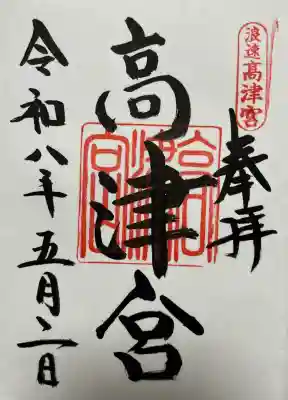 浪速高津宮
奉拝
高津宮
令和八年五月二日